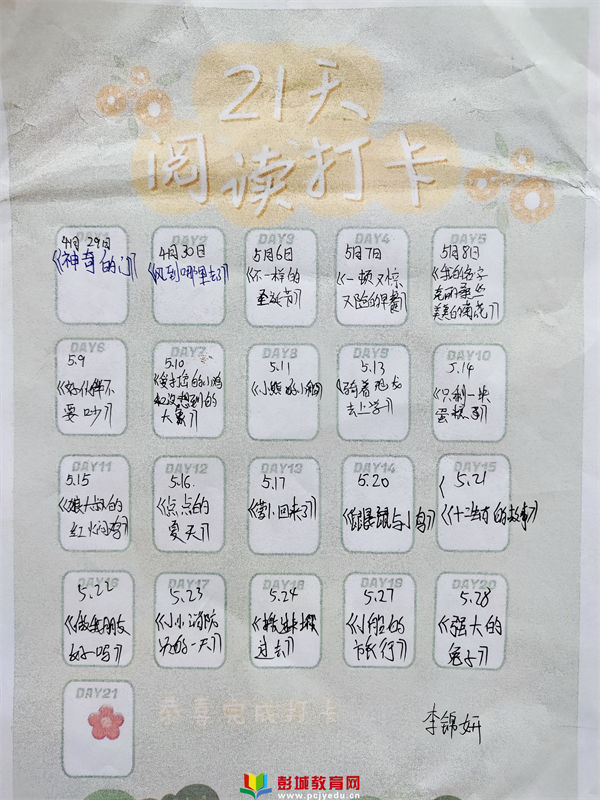 21天
阅读打卡
DAY2
DAY3
DAY4
DAY5
4月29日
《神奇的门》
4月30日
《风到哪里去了》
5月6日
《不一样的
圣诞节》
5月7日
《一顿又惊
又险的早餐》
5月8日
《我的名字
克丽桑丝
美美的菊花》
DAY6
DAY7
DAY8
DAY9
DAY10
5.9
要吵》
5.10
的小鸡
和没想到的
大象》
5.11
5.13
《骑着恐龙
去上学》
5.14
《只剩一块
蛋糕了》
DAY11
DAY12
DAY13
DAY14
DAY15
5.15
《狼大叔的
红焖鸡》
5.16
《点点的
夏天》
5.17
回来了》
5.20
5.21
《十二生肖的故事》
DAY16
DAY17
DAY18
DAY19
DAY20
5.22
《做我朋友
好吗》
5.23
《小小消防
员的一天》
5.24
过去》
5.27
《小船的
旅行》
5.28
《强大的
兔子》
DAY21
恭喜完成打卡
李锦妍
彭城教育网
www.pcjyedu.cn